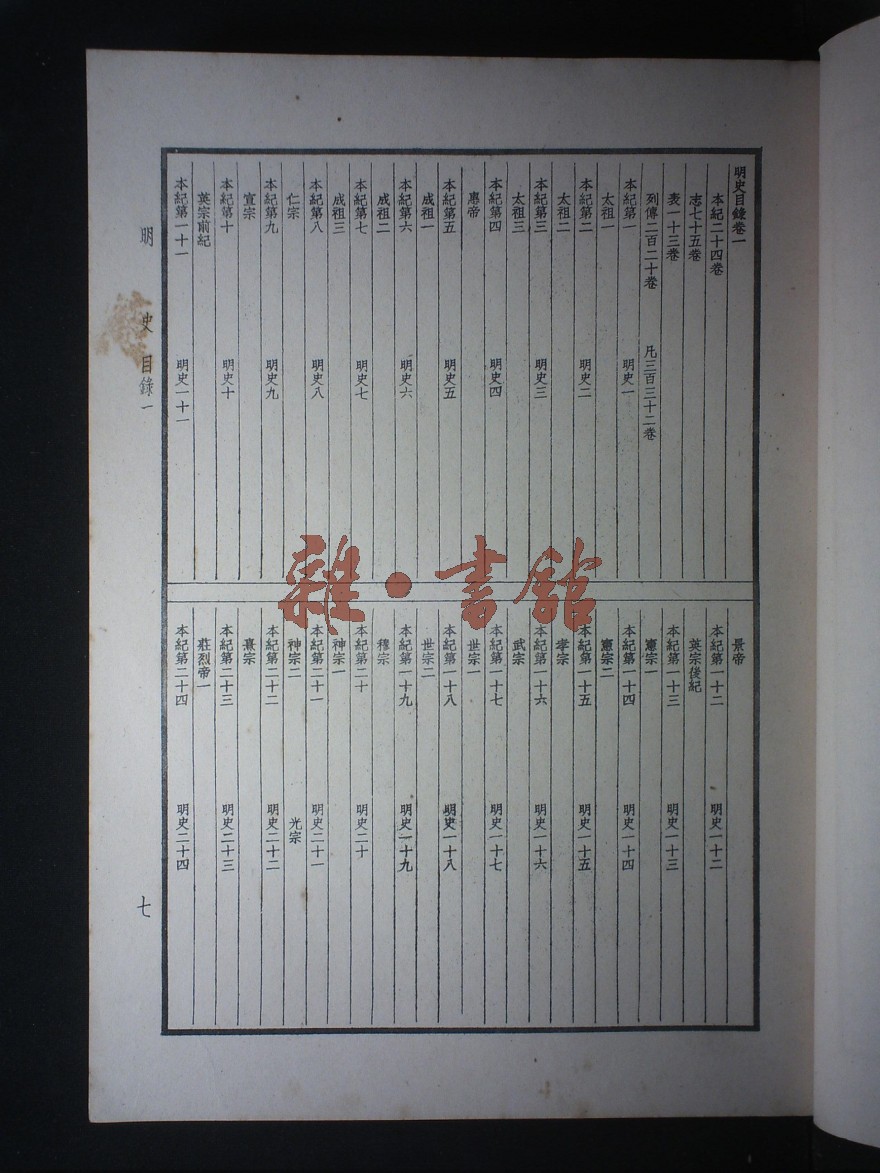 明史目錄卷一
本紀二十四卷
志七十五卷
表一十三卷
列傳二百二十卷 凡三百三十二卷
本紀第一 明史一
太祖一
本紀第二 明史二
太祖二
本紀第三 明史三
太祖三
本紀第四 明史四
惠帝
本紀第五 明史五
成祖一
本紀第六 明史六
成祖二
本紀第七 明史七
成祖三
本紀第八 明史八
仁宗
本紀第九 明史九
宣宗
本紀第十 明史十
英宗前紀
本紀第十一 明史一十一
景帝
本紀第一十二 明史一十二
英宗後紀
本紀第一十三 明史一十三
憲宗一
本紀第一十四 明史一十四
憲宗二
本紀第一十五 明史一十五
孝宗
本紀第一十六 明史一十六
武宗
本紀第一十七 明史一十七
世宗一
本紀第一十八 明史一十八
世宗二
本紀第一十九 明史一十九
穆宗
本紀第二十 明史二十
神宗一
本紀第二十一 明史二十一
神宗二 光宗
本紀第二十二 明史二十二
熹宗
本紀第二十三 明史二十三
莊烈帝一
本紀第二十四 明史二十四
明史 目錄一 七
雜·書館